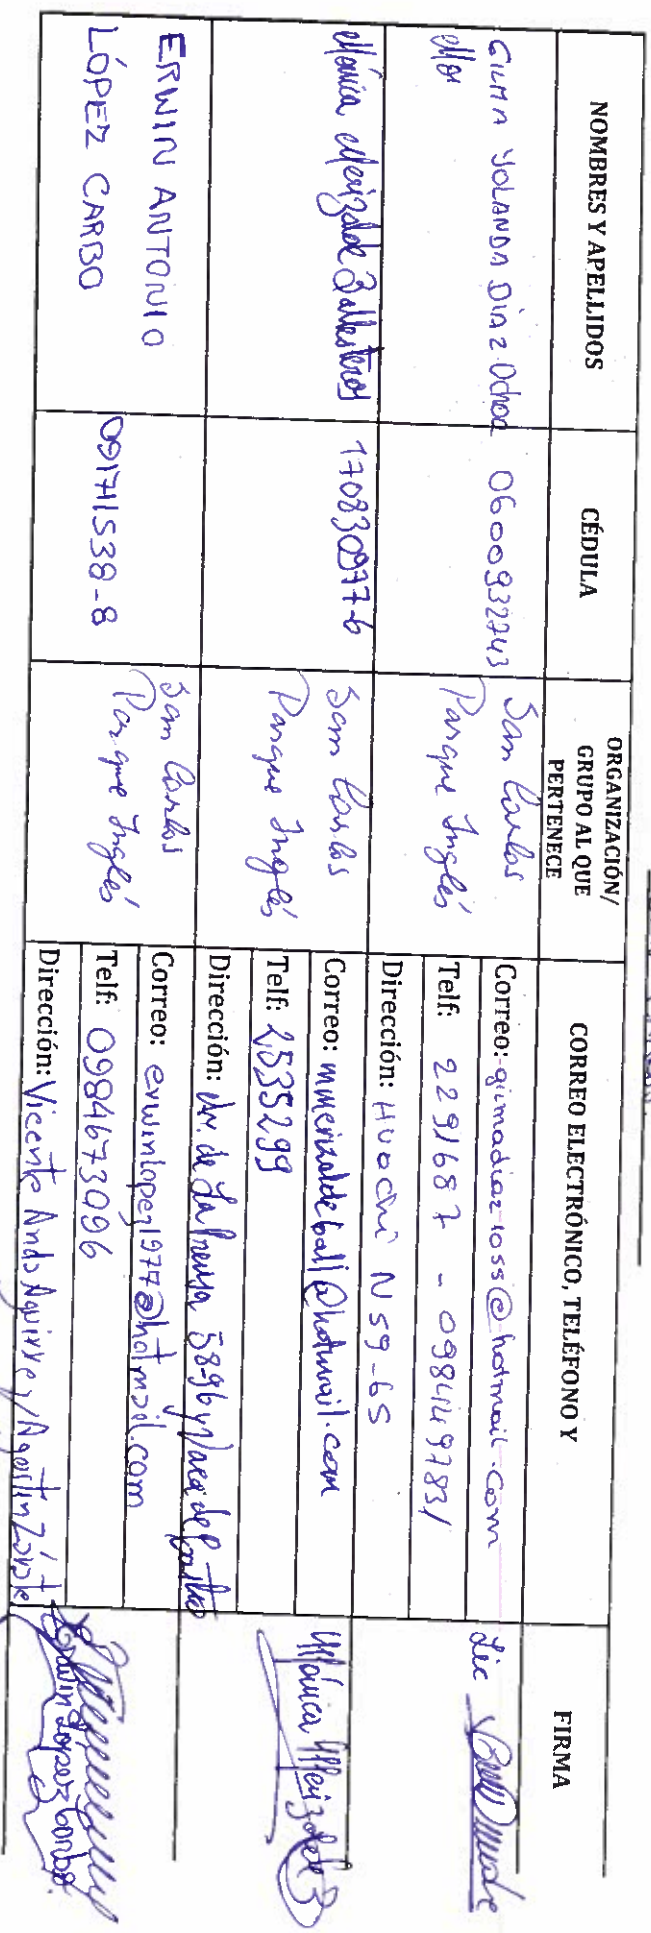 NOMBRES Y APELLIDOS
CÉDULA
ORGANIZACIÓN/
GRUPO AL QUE
PERTENECE
CORREO ELECTRÓNICO, TELÉFONO Y
FIRMA
GILMA YOLANDA DÍAZ Ochoa
0600932743
San Carlos
Parque Inglés
Correo: gilmadiaz1055@hotmail.com
Telf: 2291687 - 0984497831
Dirección: Huachi N59-65
Lic
Mónica Merizalde Ballesteros
170830977-6
San Carlos
Parque Inglés
Correo: mmerizaldeball@hotmail.com
Telf: 2535299
Dirección: Av. de La Prensa 58-96 y Vaca de Castro
Mónica Merizalde B
ERWIN ANTONIO
LÓPEZ CARBO
091711538-8
San Carlos
Parque Inglés
Correo: erwinlopez1977@hotmail.com
Telf: 0984673096
Dirección: Vicente Anda Aguirre y Agustín Zárate
Erwin Lopez Carbo.